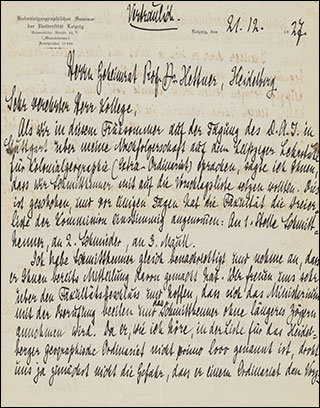 Kolonialgeographisches Seminar
der Universität Leipzig
Vertraulich.
Leipzig, den 21. 12. 1927
Herrn Geheimrat Prof. Dr. Hettner, Heidelberg
Sehr verehrter Herr Kollege,
Als wir in diesem Frühsommer auf der Tagung des D.A.I. in
Stuttgart über meine Nachfolgerschaft auf dem Leipziger Lehrstuhl
für Kolonialgeographie (Extra-Ordinariat) sprachen, sagte ich Ihnen,
dass wir Schmitthenner mit auf die Vorschlagsliste setzen wollten. Dies
ist geschehen, und vor einigen Tagen hat die Fakultät die Dreier-
liste der Kommission einstimmig angenommen: An 1. Stelle Schmitt-
henner, an 2. Schmieder, an 3.
Ich habe Schmitthenner gleich benachrichtigt und nehme an, dass
er Ihnen bereits Mitteilung davon gemacht hat. Wir freuen uns sehr
über den Fakultätsbeschluss und hoffen, dass sich das Ministerium
mit der Berufung beeilen und dass Schmitthenner ohne langes Zögern
annehmen wird. Da er, wie ich höre, in der Liste für das Heidel-
berger geographische Ordinariat nicht primo loco genannt ist, droht
uns ja zunächst nicht die Gefahr, dass er einem Ordinariat den Vorz